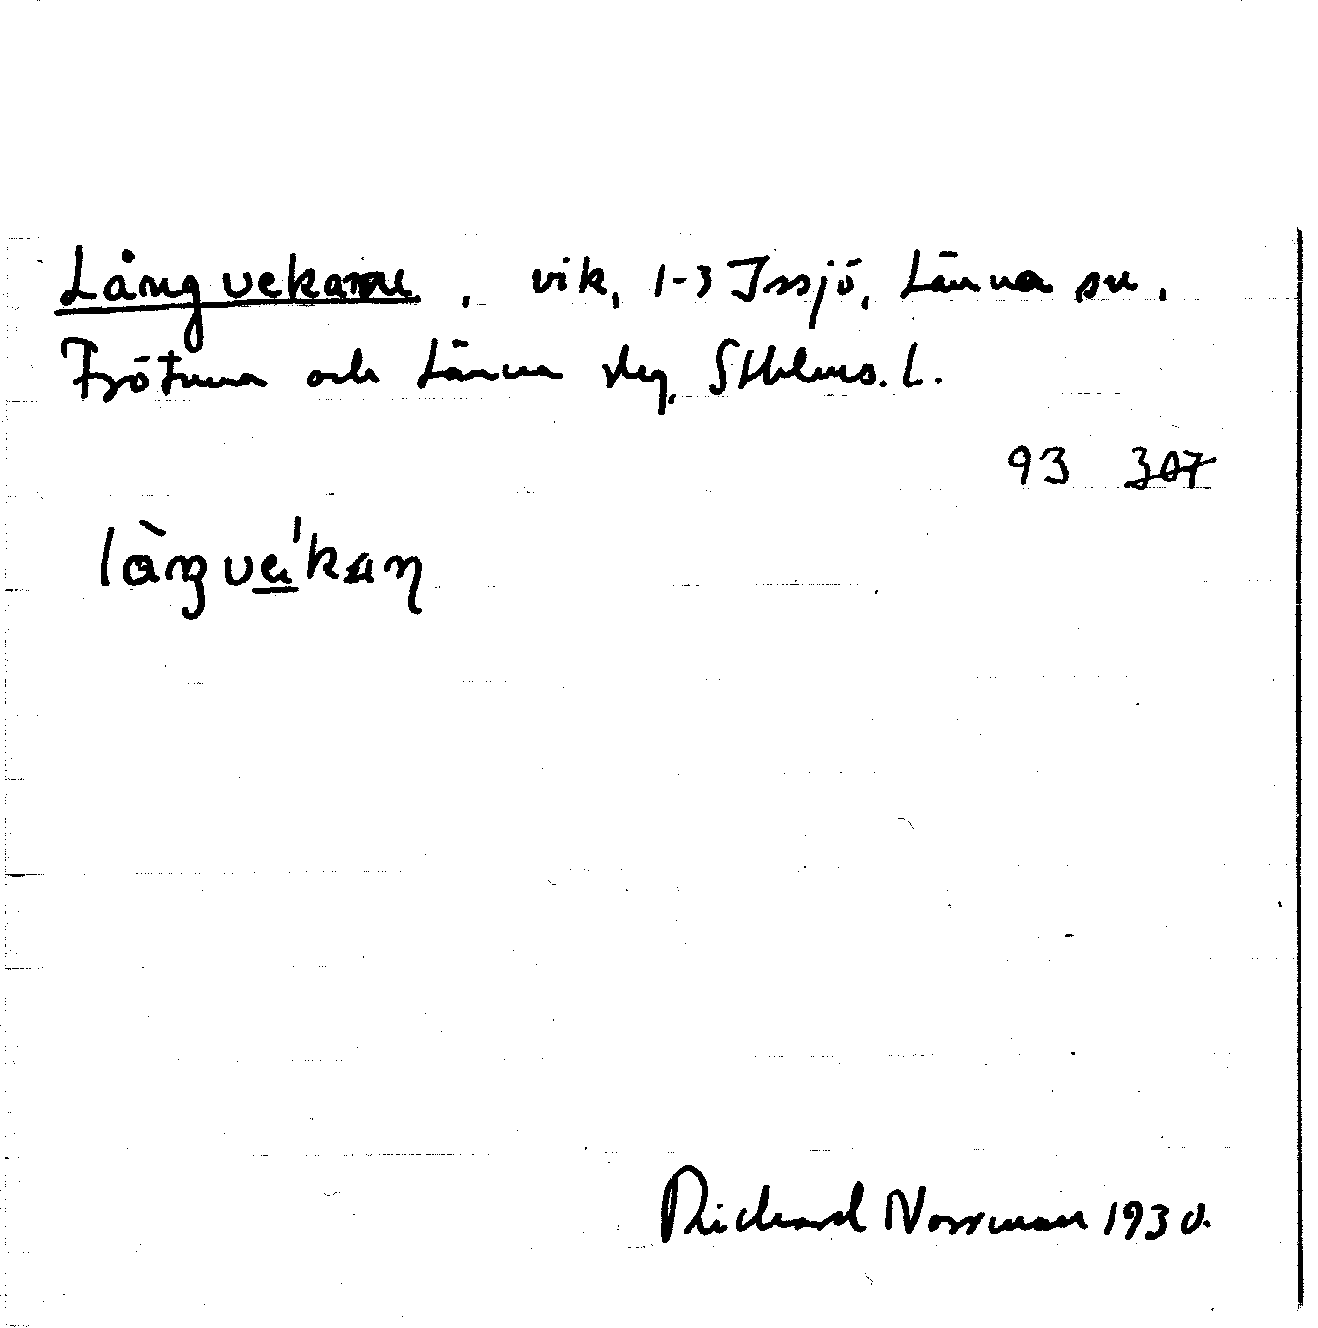 Långvekarne, vik, 1-3 Issjö, Länna sn.
Frötuna och Länna skg, Sthlms. L.
93 307
làŋve̲'kaɳ
Richard Norrman 1930.